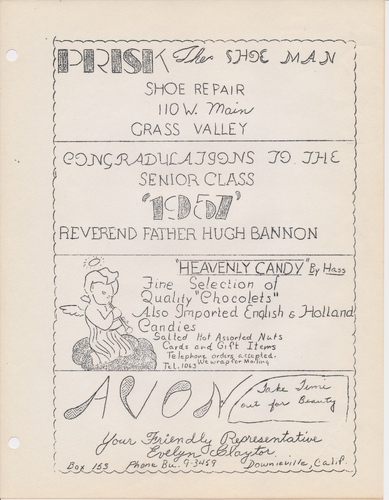 PRISK The SHOE MAN
SHOE REPAIR
110 W. Main
GRASS VALLEY
CONGRADULATIONS TO THE
SENIOR CLASS
'1957'
REVEREND FATHER HUGH BANNON
"HEAVENLY CANDY" By Hass
Fine Selection of
Quality "Chocolets"
Also Imported English & Holland
Candies
Salted Hot Assorted Nuts
Cards and Gift Items
Telephone orders accepted.
We wrap for Mailing
Tel. 1063
AVON
Take Time
out for Beauty
Your Friendly Representative
Evelyn Slaytor
Box 153 Phone Bu. 9-3459 Downieville, Calif.